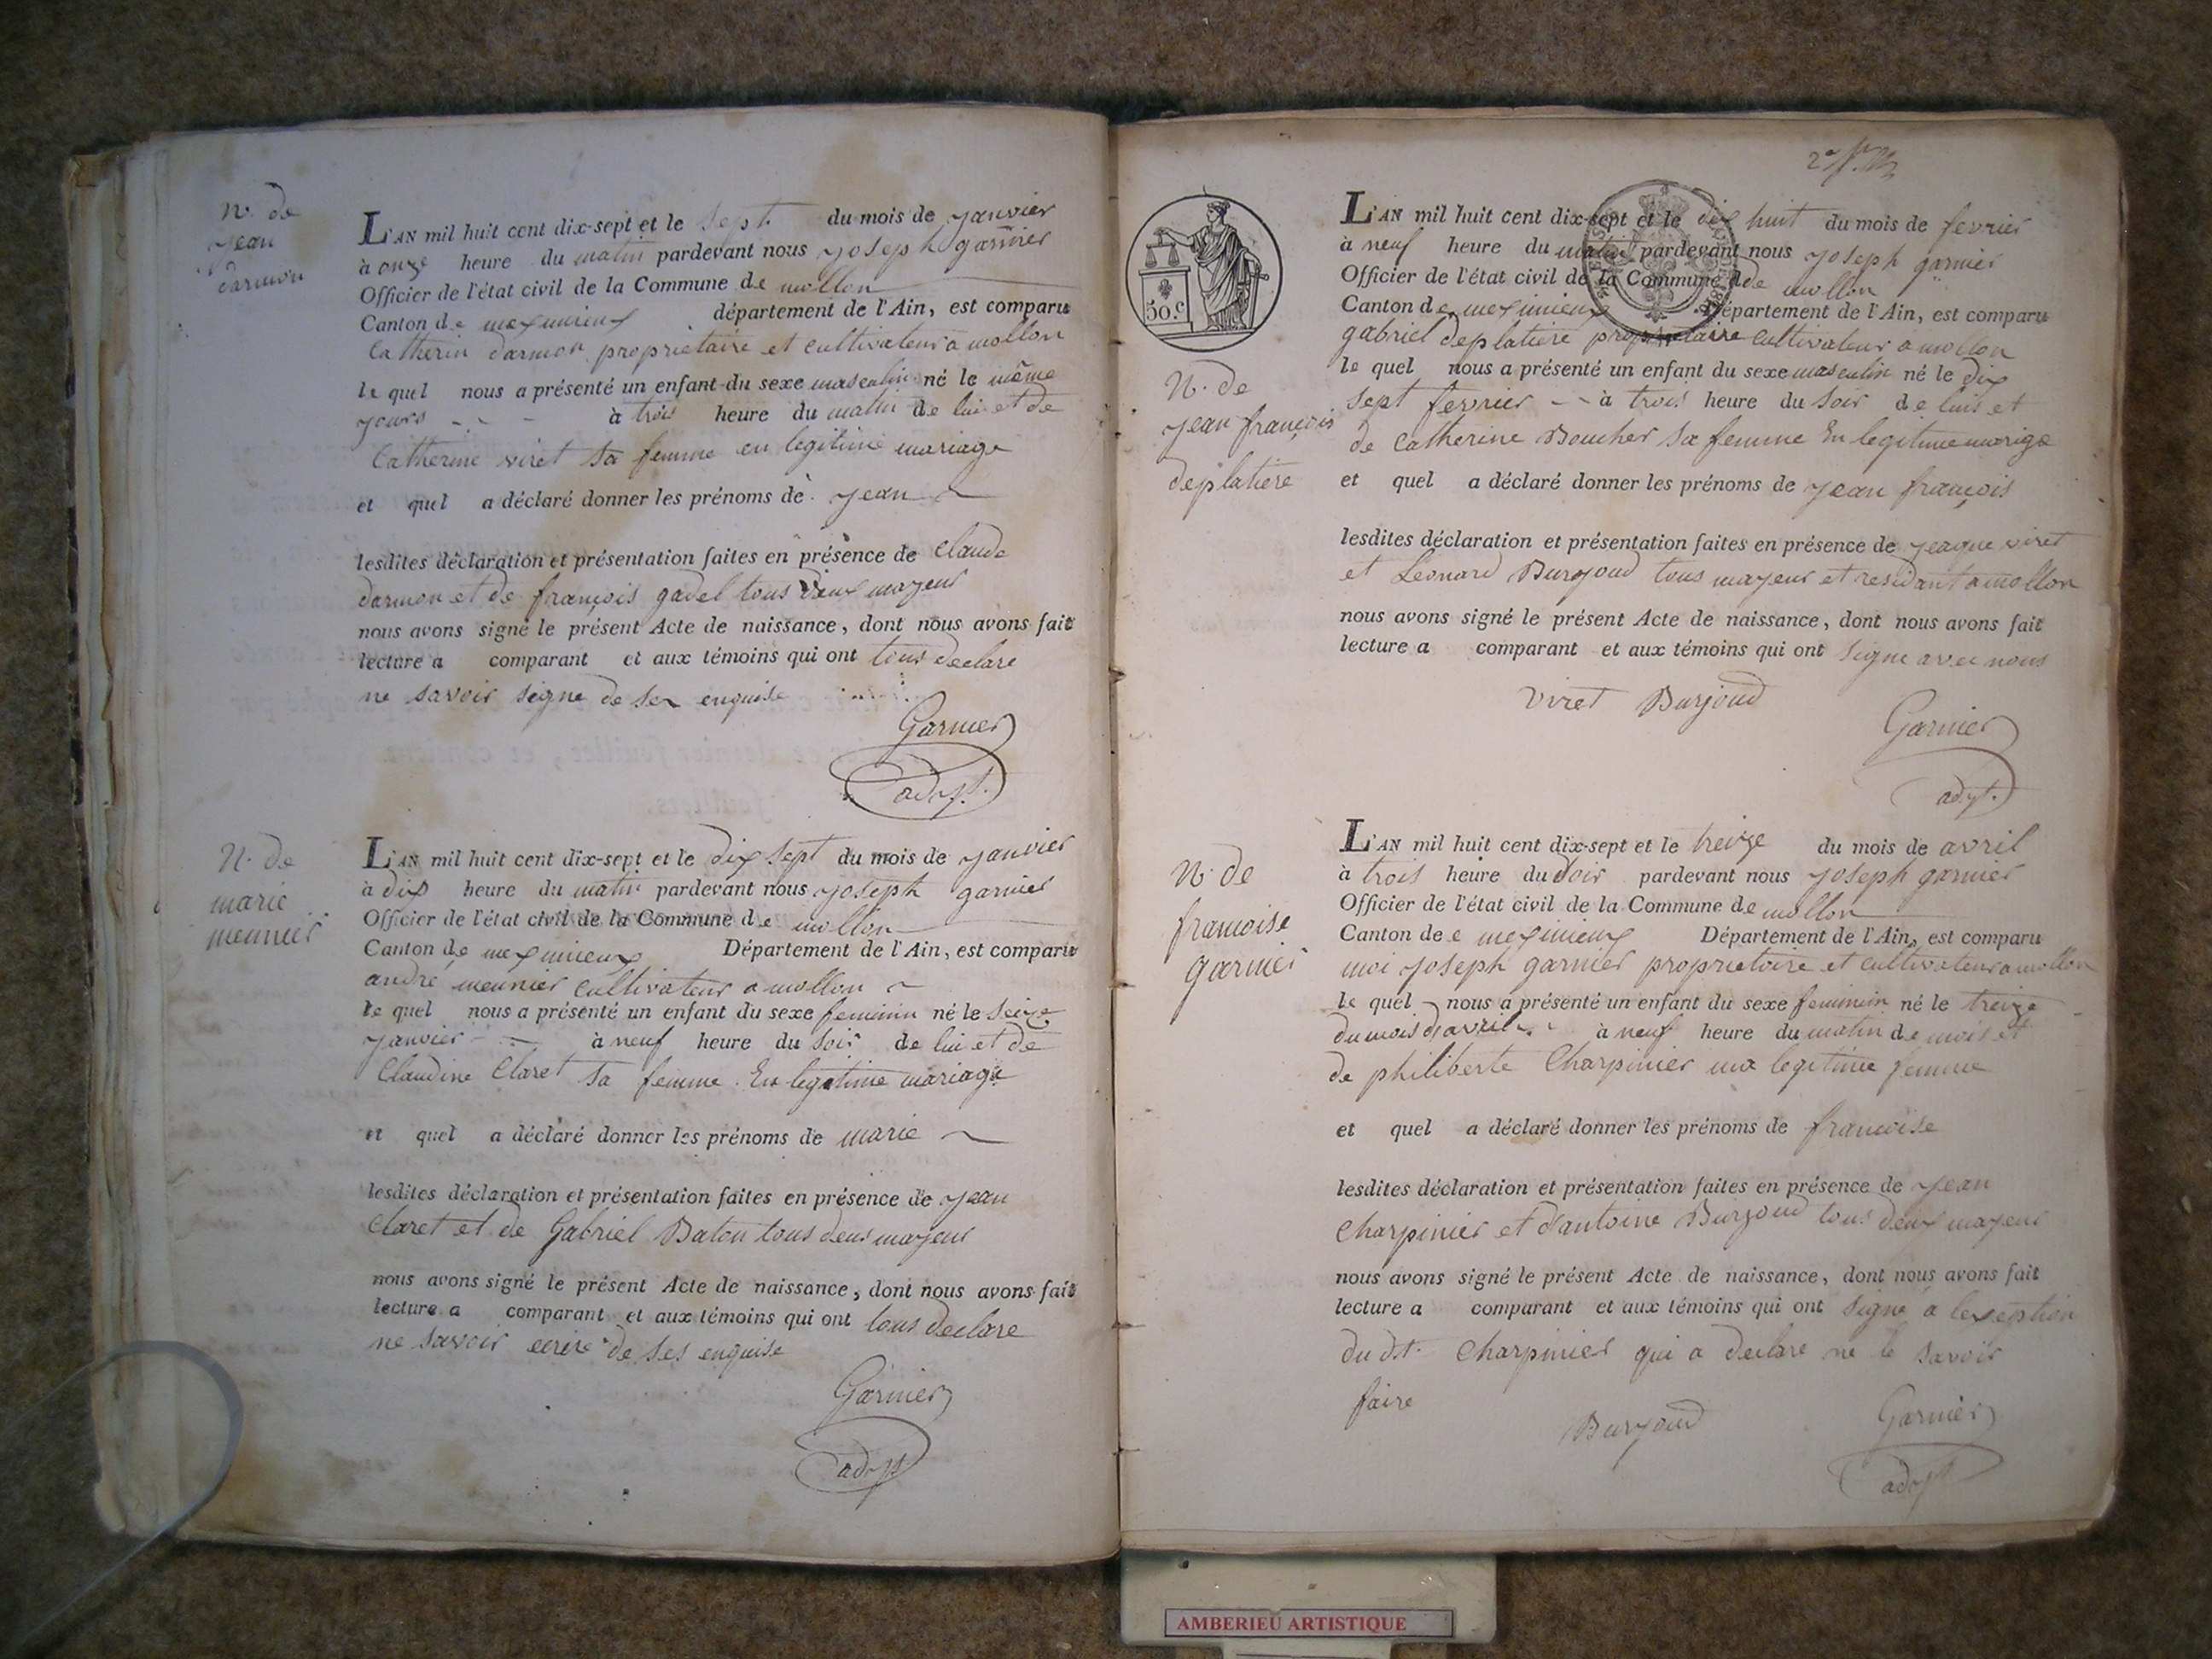 N. de
jean
darmon
L'AN mil huit cent dix-sept et le sept du mois de janvier
à onze heure du matin pardevant nous joseph garnier
Officier de l'état civil de la Commune de mollon
Canton de meximieux département de l'Ain, est comparu
Catherin darmon proprietaire et cultivateur a mollon
le quel nous a présenté un enfant du sexe masculin né le même
jours à trois heure du matin de lui et de
Catherine viret sa femme en legitime mariage
et quel a déclaré donner les prénoms de jean
lesdites déclaration et présentation faites en présence de claude
darmon et de françois gadel tous deux majeur
nous avons signé le présent Acte de naissance, dont nous avons fait
lecture a comparant et aux témoins qui ont tous declare
ne savoir signe de ser enquise
Garnier
adjt.
N. de
marie
meunier
L'AN mil huit cent dix-sept et le dix sept du mois de janvier
à dix heure du matin pardevant nous joseph garnier
Officier de l'état civil de la Commune de mollon
Canton de meximieux Département de l'Ain, est comparu
andré meunier cultivateur a mollon
le quel nous a présenté un enfant du sexe feminin né le seize
janvier à neuf heure du soir de lui et de
Claudine Claret sa femme En legitime mariage
et quel a déclaré donner les prénoms de marie
lesdites déclaration et présentation faites en présence de jean
claret et de Gabriel Baton tous deus majeur
nous avons signé le présent Acte de naissance, dont nous avons fait
lecture a comparant et aux témoins qui ont tous declare
ne savoir ecrire de ses enquise
Garnier
adjt
50.c
N. de
jean françois
deplatiere
L'AN mil huit cent dix-sept et le dix huit du mois de fevrier
à neuf heure du matin pardevant nous joseph garnier
Officier de l'état civil de la Commune de mollon
Canton de meximieux Département de l'Ain, est comparu
gabriel deplatiere proprietaire cultivateur a mollon
le quel nous a présenté un enfant du sexe masculin né le dix
sept fevrier à trois heure du soir de luis et
de Catherine Boucher sa femme En legitime marige
et quel a déclaré donner les prénoms de jean françois
lesdites déclaration et présentation faites en présence de jeaque viret
et Leonard Burjoud tous majeur et residant a mollon
nous avons signé le présent Acte de naissance, dont nous avons fait
lecture a comparant et aux témoins qui ont signe avec nous
viret Burjoud
Garnier
adjt.
N. de
francoise
garnier
L'AN mil huit cent dix-sept et le treize du mois de avril
à trois heure du soir pardevant nous joseph garnier
Officier de l'état civil de la Commune de mollon
Canton de e meximieux Département de l'Ain, est comparu
moi joseph garnier proprietoire et cultivateur a mollon
le quel nous a présenté un enfant du sexe feminin né le treize
du mois d'avril à neuf heure du matin de mois et
de philiberte Charpinier ma legitime femme
et quel a déclaré donner les prénoms de francoise
lesdites déclaration et présentation faites en présence de jean
Charpinier et d'antoine Burjoud tous deux majeur
nous avons signé le présent Acte de naissance, dont nous avons fait
lecture a comparant et aux témoins qui ont signe a lexeption
du dt. Charpinier qui a declare ne le savoir
faire
Burjoud
Garnier
adjt
AMBERIEU ARTISTIQUE